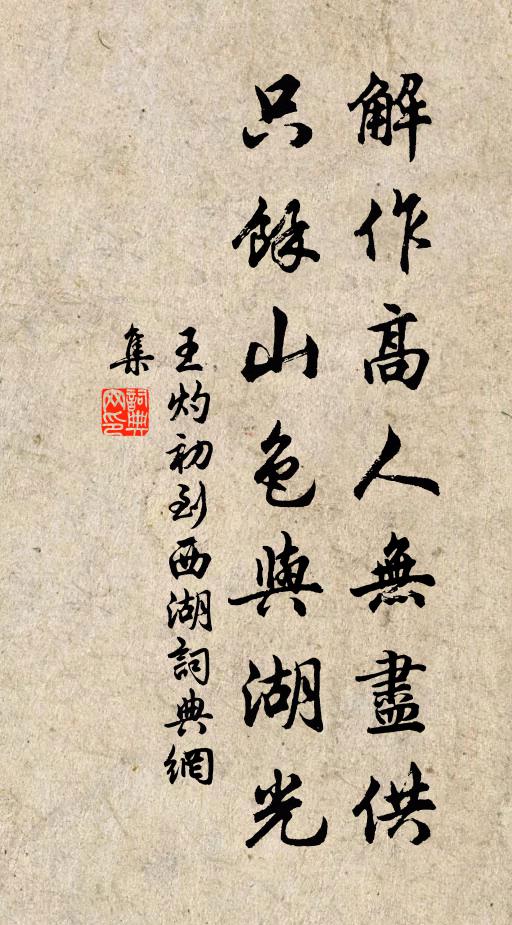 解作高人無盡供
只餘山色與湖光
王灼初到西湖詞典網
集
詞典
网印